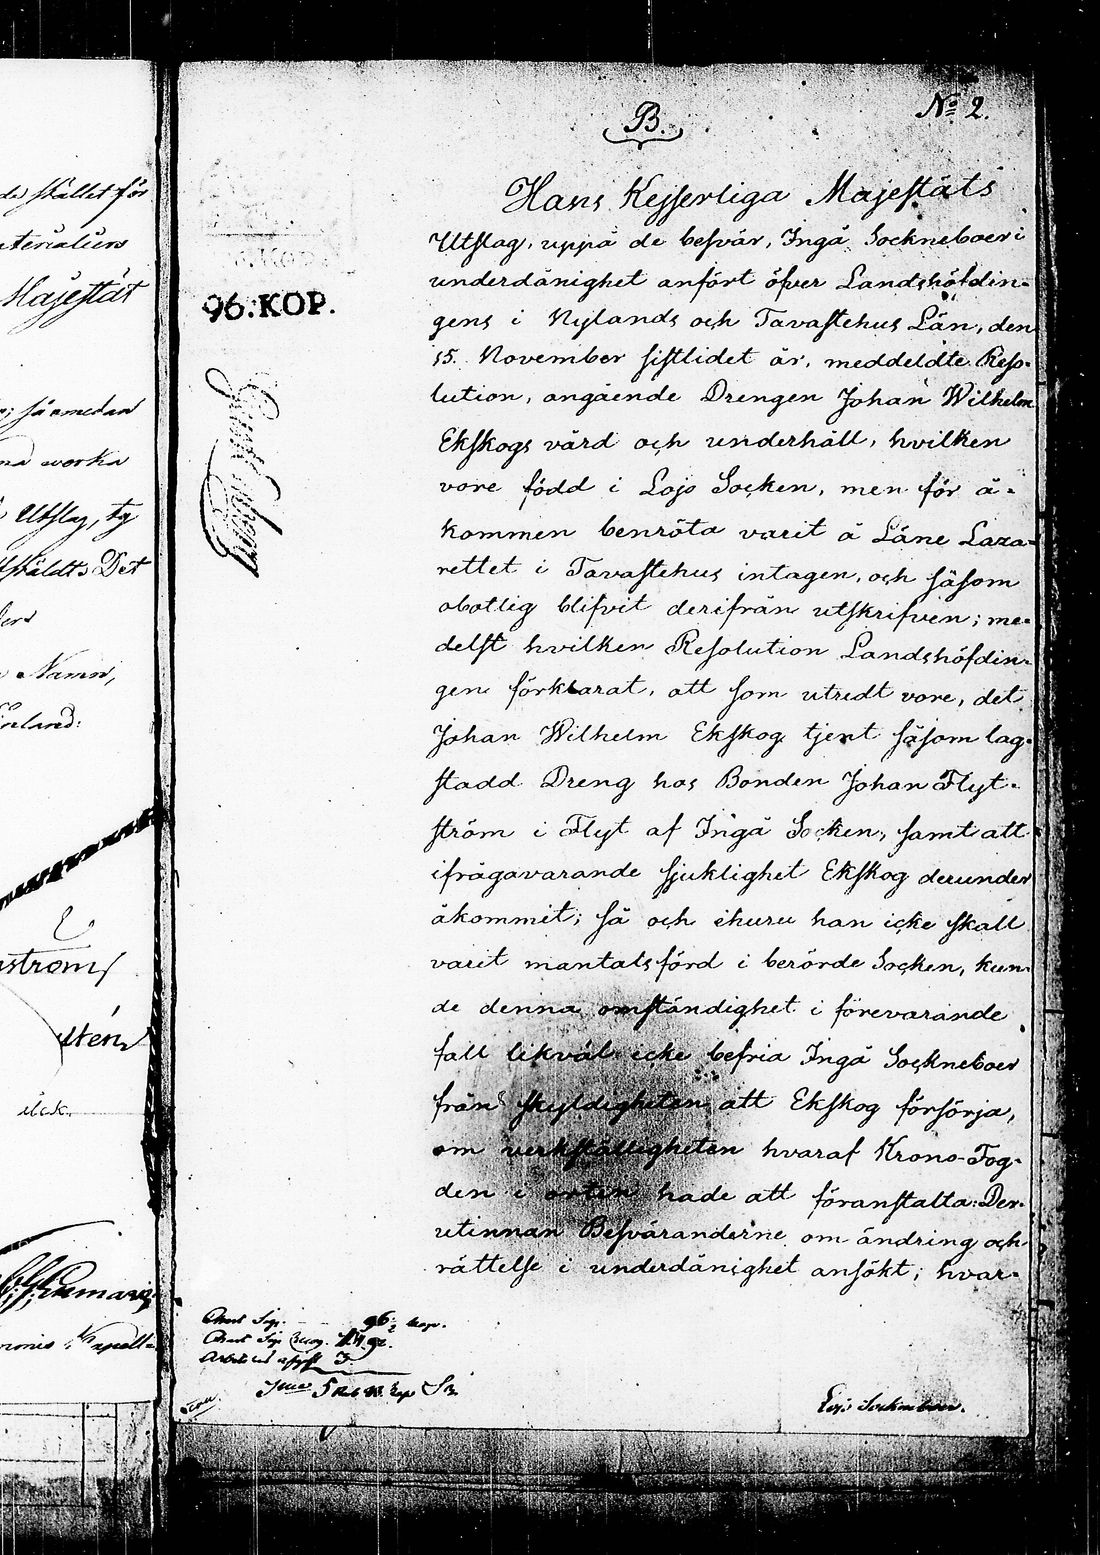 de stället för
Majestät
B.
No 2.
Hans Kejserliga Majestäts
Utslag, uppå de besvär, Ingå Sockneboer i
underdånighet anfört öfver Landshöfdin-
gens i Nylands och Tavastehus Län, den
15. November sistlidet år, meddeldte Reso-
lution, angående Drengen Johan Wilhelm
Ekskogs vård och underhåll, hvilken
vore född i Lojo Socken, men för å-
kommen benröta varit å Läne Laza-
rettet i Tavastehus intagen, och såsom
obotlig blifvit derifrån utskrifven; me-
delst hvilken Resolution Landshöfdin-
gen förklarat, att som utredt vore, det
Johan Wilhelm Ekskog tjent såsom lag-
stadd Dreng hos Bonden Johan Flyt-
ström i Flyt af Ingå Socken, samt att
ifrågavarande sjuklighet Ekskog derunder
åkommit; så och ehuru han icke skall
varit mantalsförd i berörde Socken, kun-
de denna omständighet i förevarande
fall likväl icke befria Ingå Sockneboer
från skyldigheten att Ekskog försörja,
om verkställigheten hvaraf Krono-Fog-
den i orten hade att föranstalta: Der-
utinnan Besväranderne om ändring och
rättelse i underdånighet ansökt; hvar-
96. KOP.
Lojo Sockneboer.